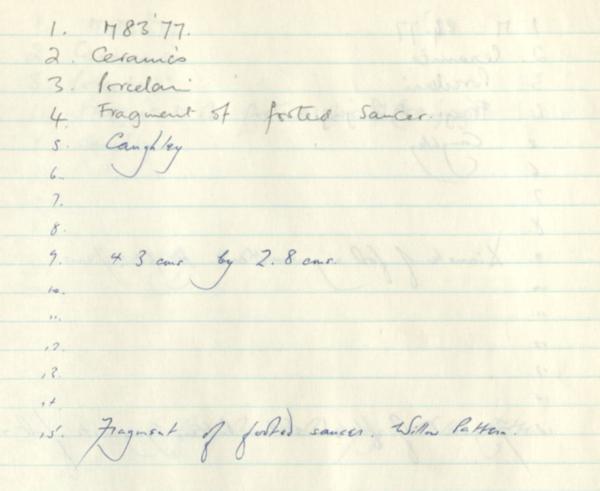 1. M83'77.
2. Ceramics
3. Porcelain
4. Fragment of footed saucer.
5. Caughley
6.
7.
8.
9. 4.3 cms by 2.8 cms.
10.
11.
12.
13.
14.
15. Fragment of footed saucer. Willow Pattern.